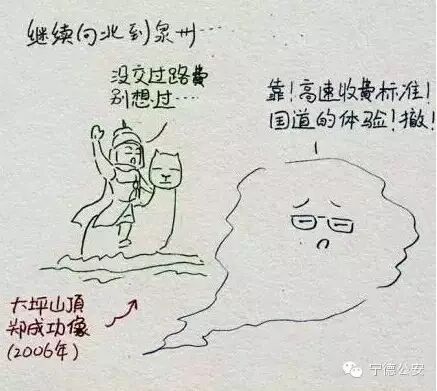 继续向北到泉州……
没交过路费
别想过……
靠!高速收费标准!
国道的体验!撤!
大坪山顶
郑成功像
(2006年)
宁德公安